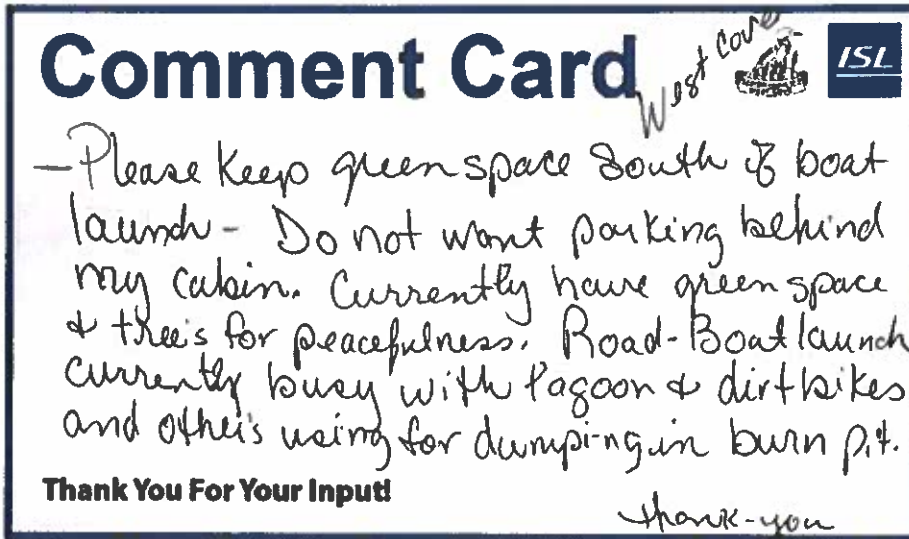 Comment Card
West Cove
ISL
- Please Keep green space South of boat
launch - Do not want parking behind
my cabin. Currently have green space
& tree's for peacefulness. Road-Boat launch
currently busy with lagoon & dirtbikes
and other's using for dumping in burn pit.
Thank You For Your Input!
thank-you